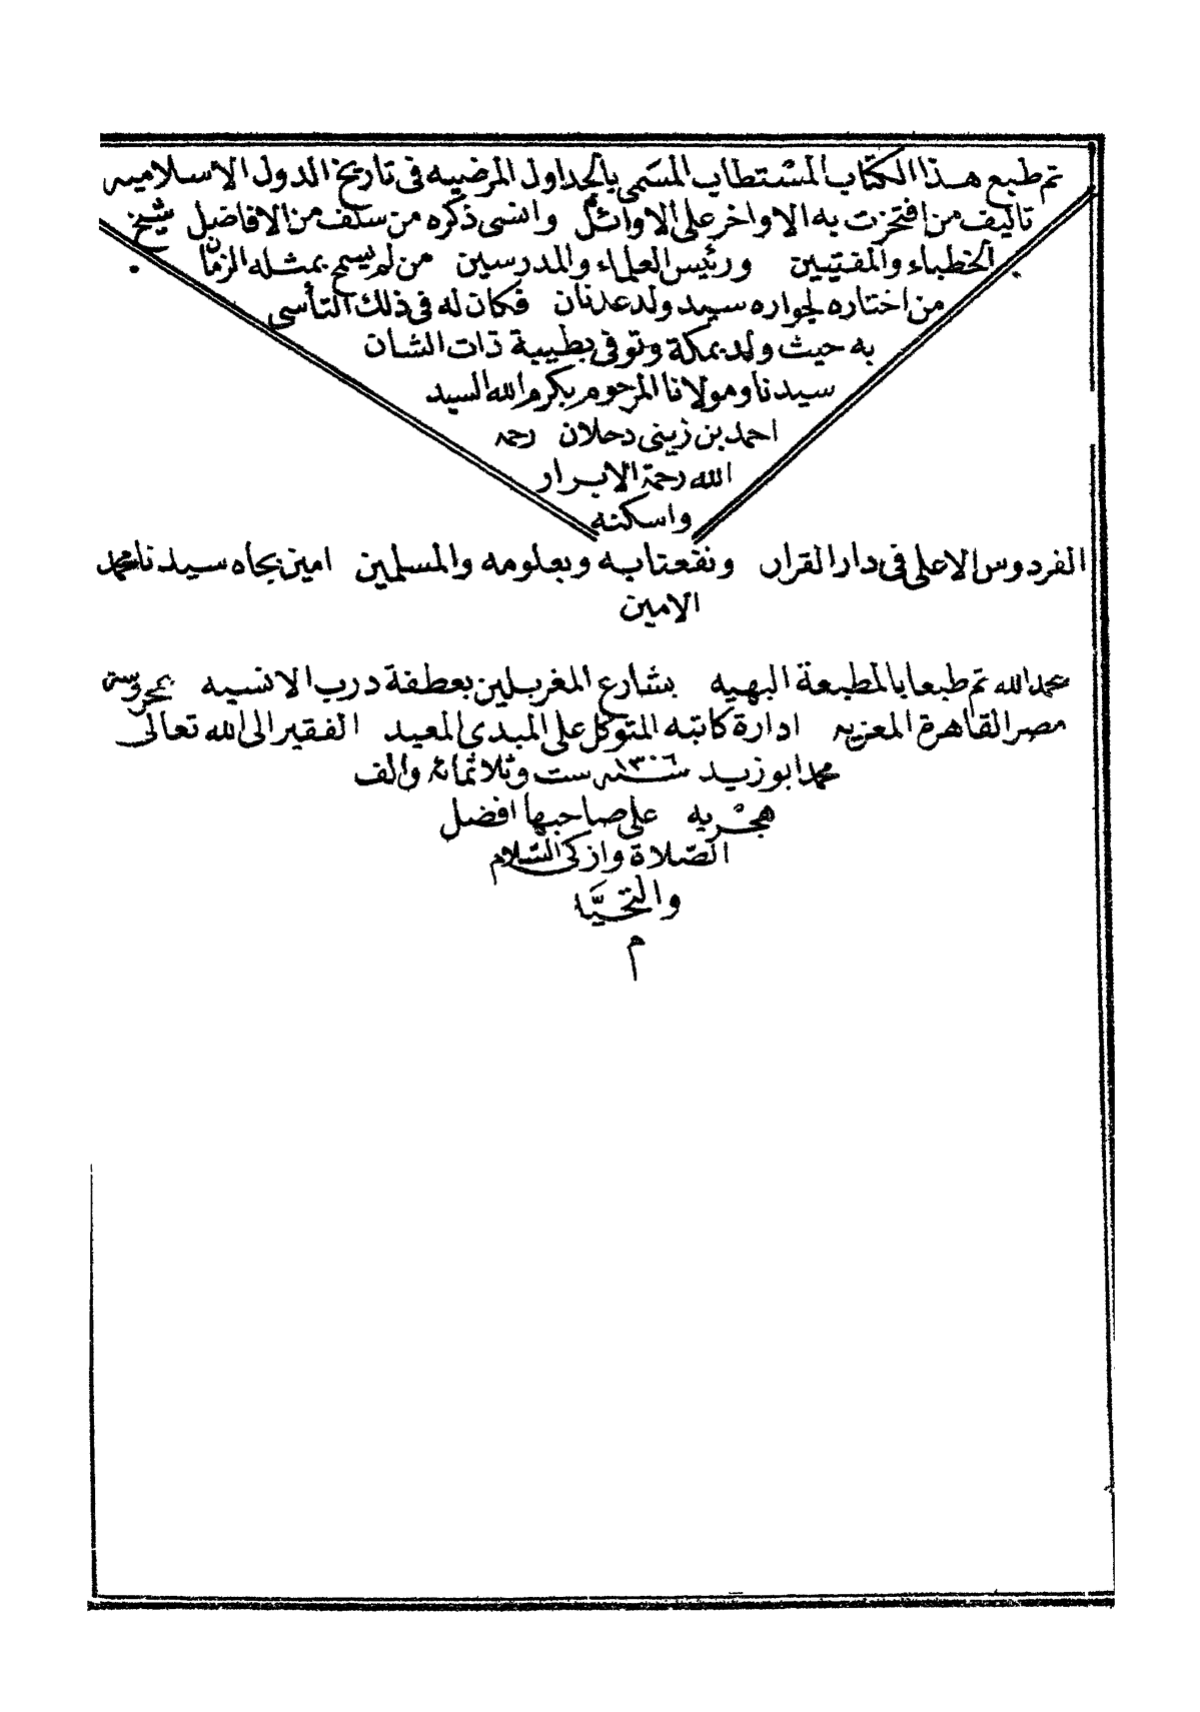 تم طبع هذا الكتاب المستطاب المسمى بالجداول المرضيه فى تاريخ الدول الاسلاميه
تاليف من افتخرت به الاواخر على الاوائل وانسى ذكره من سلف من الافاضل شيخ
الخطباء والمفتيين ورئيس العلماء والمدرسين من لم يسمح بمثله الزمان
من اختاره لجواره سيد ولد عدنان فكان له فى ذلك التأسى
به حيث ولد بمكة وتوفى بطيبة ذات الشان
سيدنا ومولانا المرحوم بكرم الله السيد
احمد بن زينى دحلان رحمه
الله رحمة الابرار
واسكنه
الفردوس الاعلى فى دار القرار ونفعنا به وبعلومه والمسلمين امين بجاه سيدنا محمد
الامين
بحمد الله تم طبعا بالمطبعة البهيه بشارع المغربلين بعطفة درب الانسيه بمحروسة
مصر القاهرة المعزيه ادارة كاتبه المتوكل على المبدى المعيد الفقير الى الله تعالى
محمد ابو زيد سنه ١٣٠٦ ست وثلاثمائة والف
هجريه على صاحبها افضل
الصّلاة وازكى السّلام
والتحيَّا
م